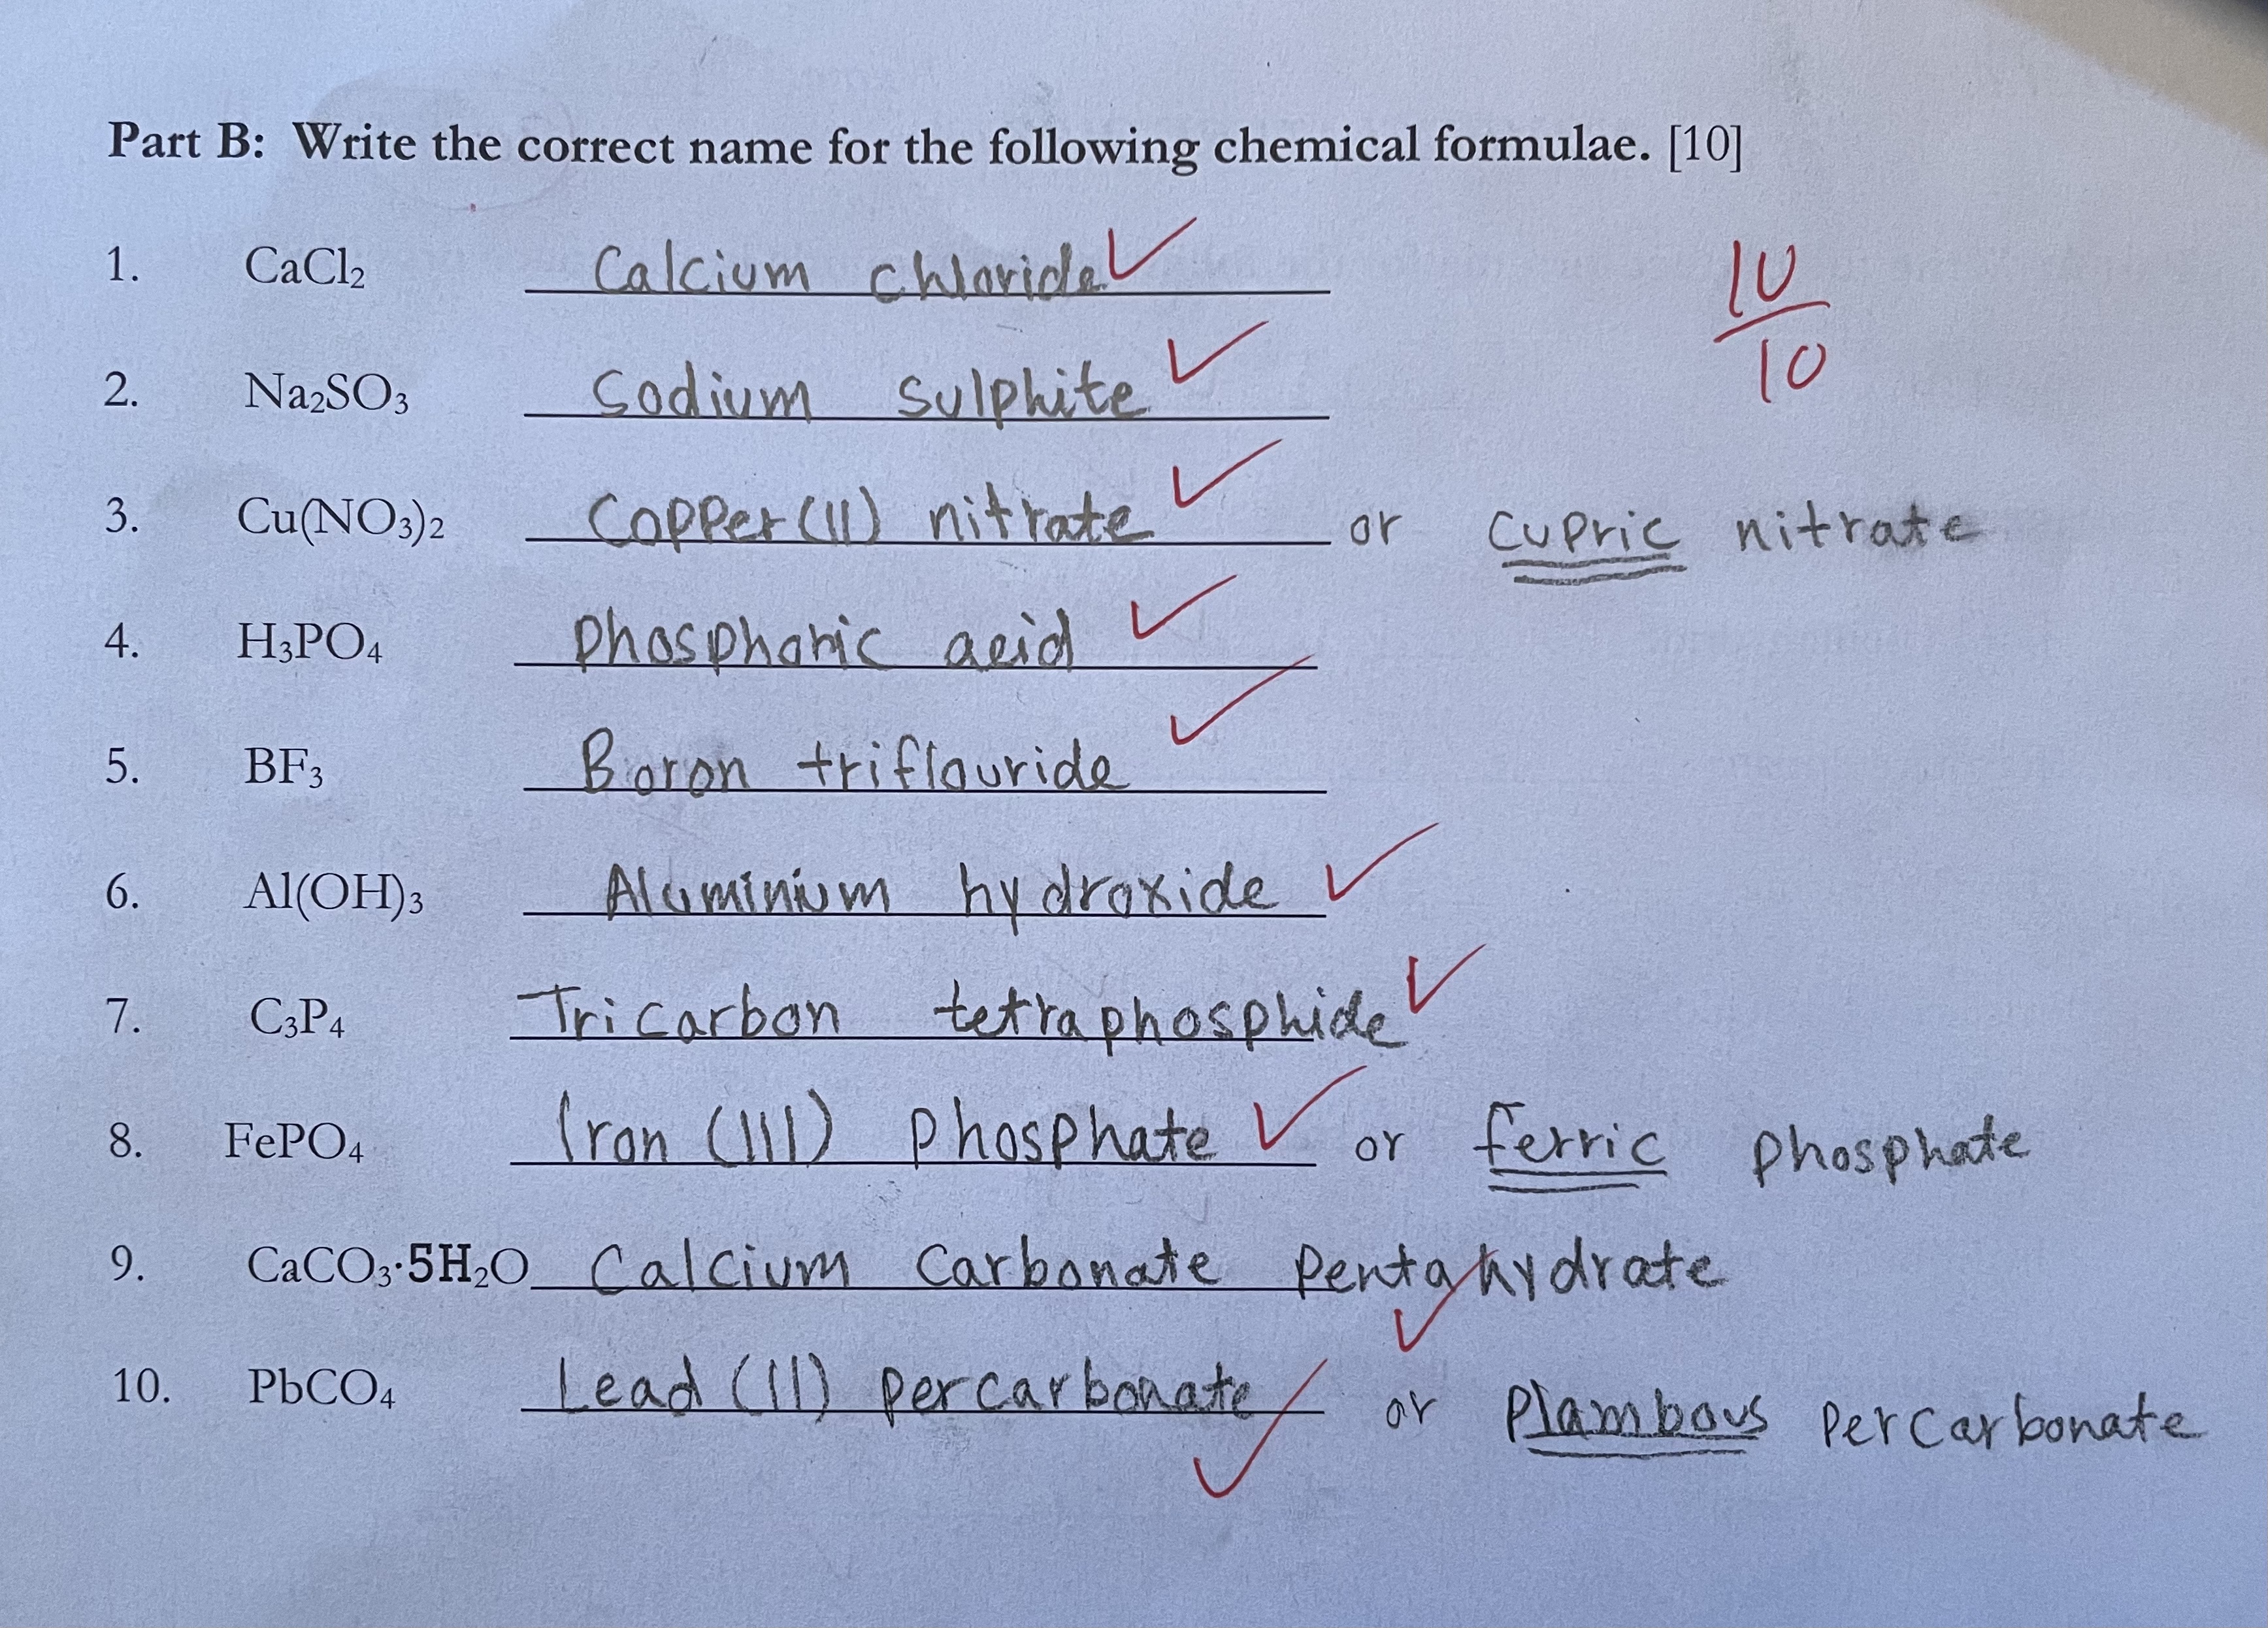 Part B: Write the correct name for the following chemical formulae. [10]
1. CaCl₂ Calcium chloride
10/10
2. Na₂SO₃ Sodium sulphite
3. Cu(NO₃)₂ Copper (II) nitrate or cupric nitrate
4. H₃PO₄ Phosphoric acid
5. BF₃ Boron triflouride
6. Al(OH)₃ Aluminium hydroxide
7. C₃P₄ Tricarbon tetraphosphide
8. FePO₄ Iron (III) phosphate or ferric phosphate
9. CaCO₃·5H₂O Calcium Carbonate Pentahydrate
10. PbCO₄ Lead (II) percarbonate or Plambous percarbonate